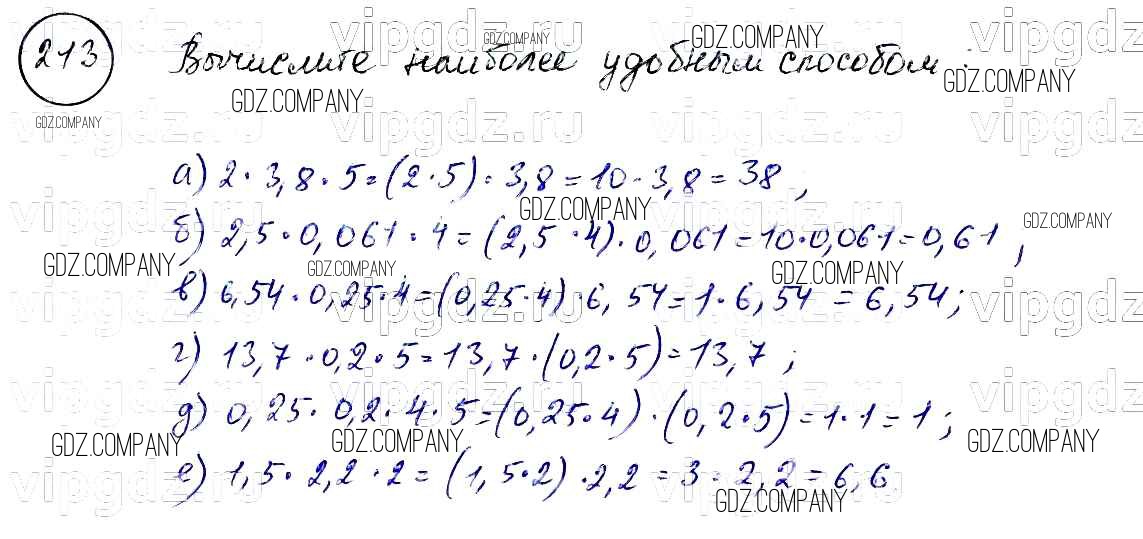 213 Вычислите наиболее удобным способом:
а) 2·3,8·5=(2·5)·3,8=10·3,8=38;
б) 2,5·0,061·4=(2,5·4)·0,061=10·0,061=0,61;
в) 6,54·0,25·4=(0,25·4)·6,54=1·6,54=6,54;
г) 13,7·0,2·5=13,7·(0,2·5)=13,7;
д) 0,25·0,2·4·5=(0,25·4)·(0,2·5)=1·1=1;
е) 1,5·2,2·2=(1,5·2)·2,2=3·2,2=6,6
vipgdz.ru
GDZ.COMPANY